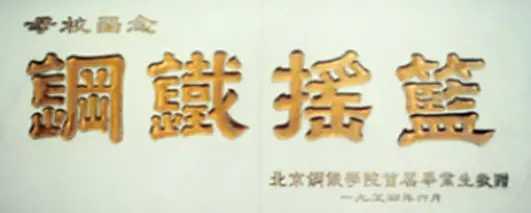 母校留念
鋼鐵搖籃
北京鋼鐵學院首屆畢業生敬贈
一九五四年六月